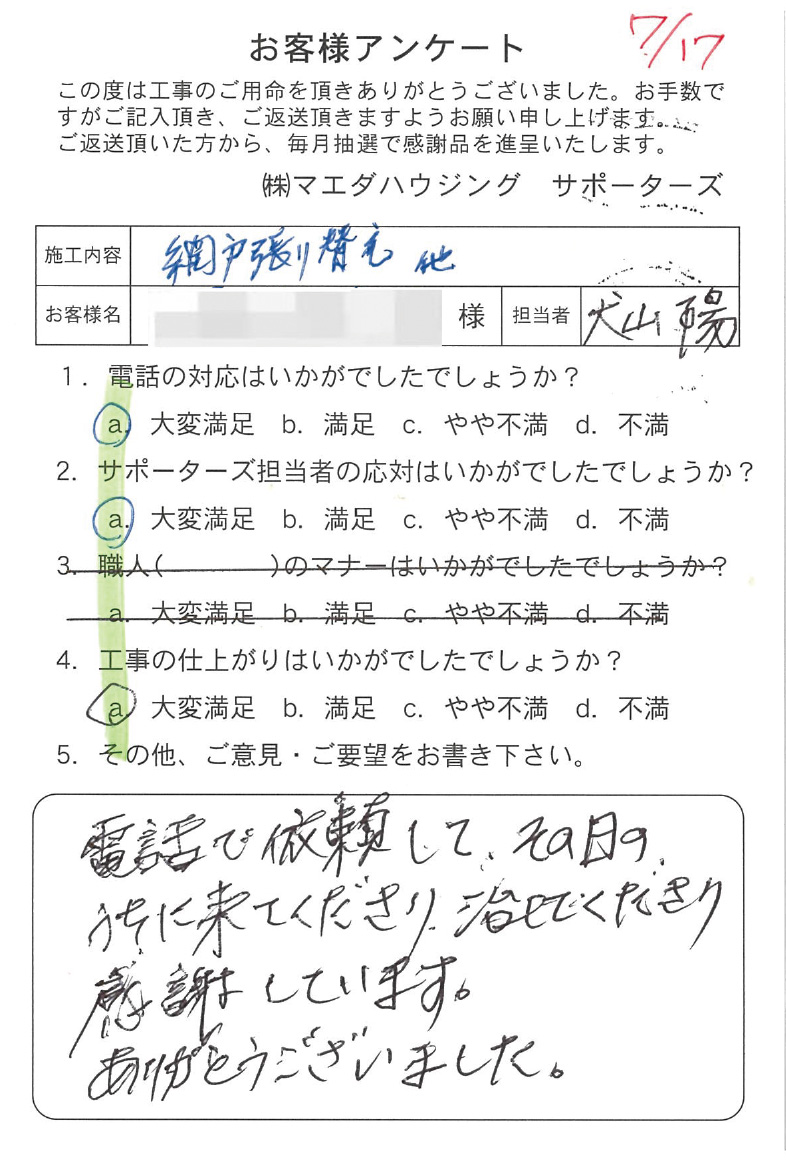 7/17
お客様アンケート
この度は工事のご用命を頂きありがとうございました。お手数で
すがご記入頂き、ご返送頂きますようお願い申し上げます。
ご返送頂いた方から、毎月抽選で感謝品を進呈いたします。
㈱マエダハウジング　サポーターズ
施工内容 網戸張り替え 他
お客様名 様 担当者 犬山 陽
1. 電話の対応はいかがでしたでしょうか？
a. 大変満足 b. 満足 c. やや不満 d. 不満
2. サポーターズ担当者の応対はいかがでしたでしょうか？
a. 大変満足 b. 満足 c. やや不満 d. 不満
3. 職人(　　　　)のマナーはいかがでしたでしょうか？
a. 大変満足 b. 満足 c. やや不満 d. 不満
4. 工事の仕上がりはいかがでしたでしょうか？
a 大変満足 b. 満足 c. やや不満 d. 不満
5. その他、ご意見・ご要望をお書き下さい。
電話で依頼して、その日の
うちに来てくださり、治してくださり
感謝しています。
ありがとうございました。